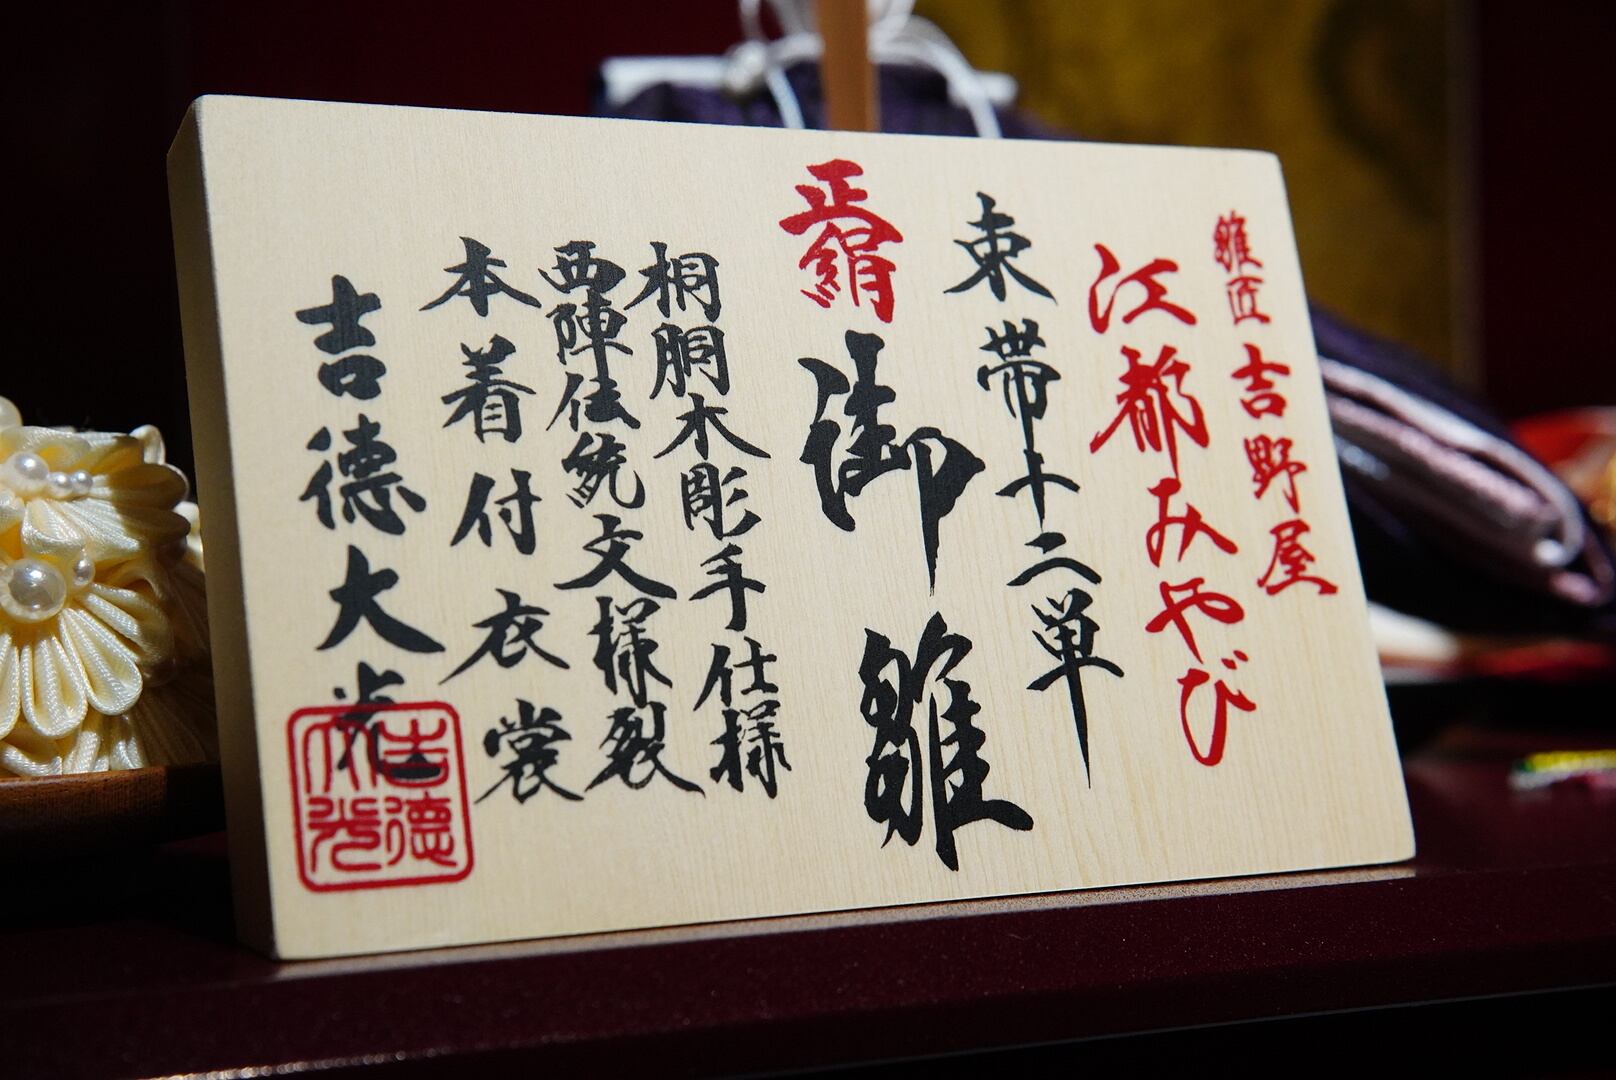 雛匠 吉野屋
江都みやび
束帯十二単
正絹 御雛
桐胴木彫手仕様
西陣伝統文様裂
本着付衣裳
吉徳大光
吉徳大光